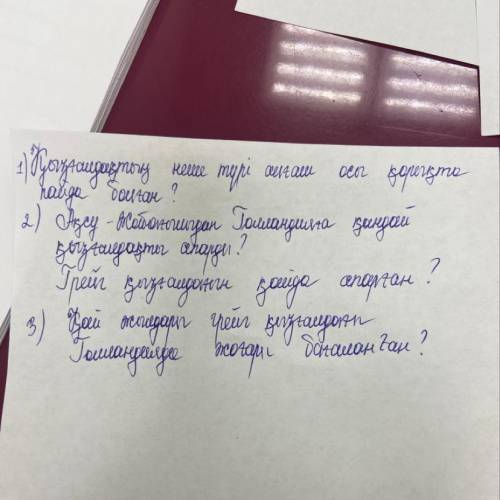 1) Қызғалдақтың неше түрі алғаш осы қорықта
пайда болған ?
2) Ақсу - Жабағлыдан Голландияға қандай
қызғалдақты апарды ?
Грейг қызғалдағын қайда апарған ?
3) Қай жылдары грейг қызғалдағы
Голландияда жоғары бағаланған ?